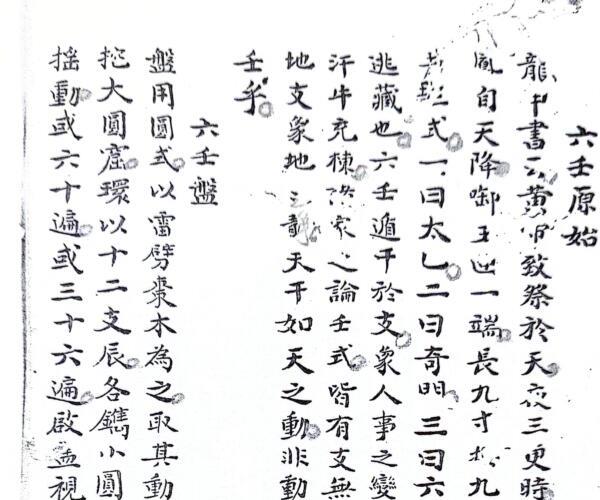 六壬原始
龍甲書云黃帝致祭於天夜三更時
鳳自天降啣玉一端長九寸九
式一曰太乙二曰奇門三曰六
逃藏也六壬遁干於支象人事之變
汗牛充棟家之論壬式皆有支無
地支象地天干如天之動非動
壬乎
六壬盤
盤用圓式以雷劈棗木為之取其動
挖大圓窟環以十二支辰各鐫小圓
搖動或六十遍或三十六遍啟盖視